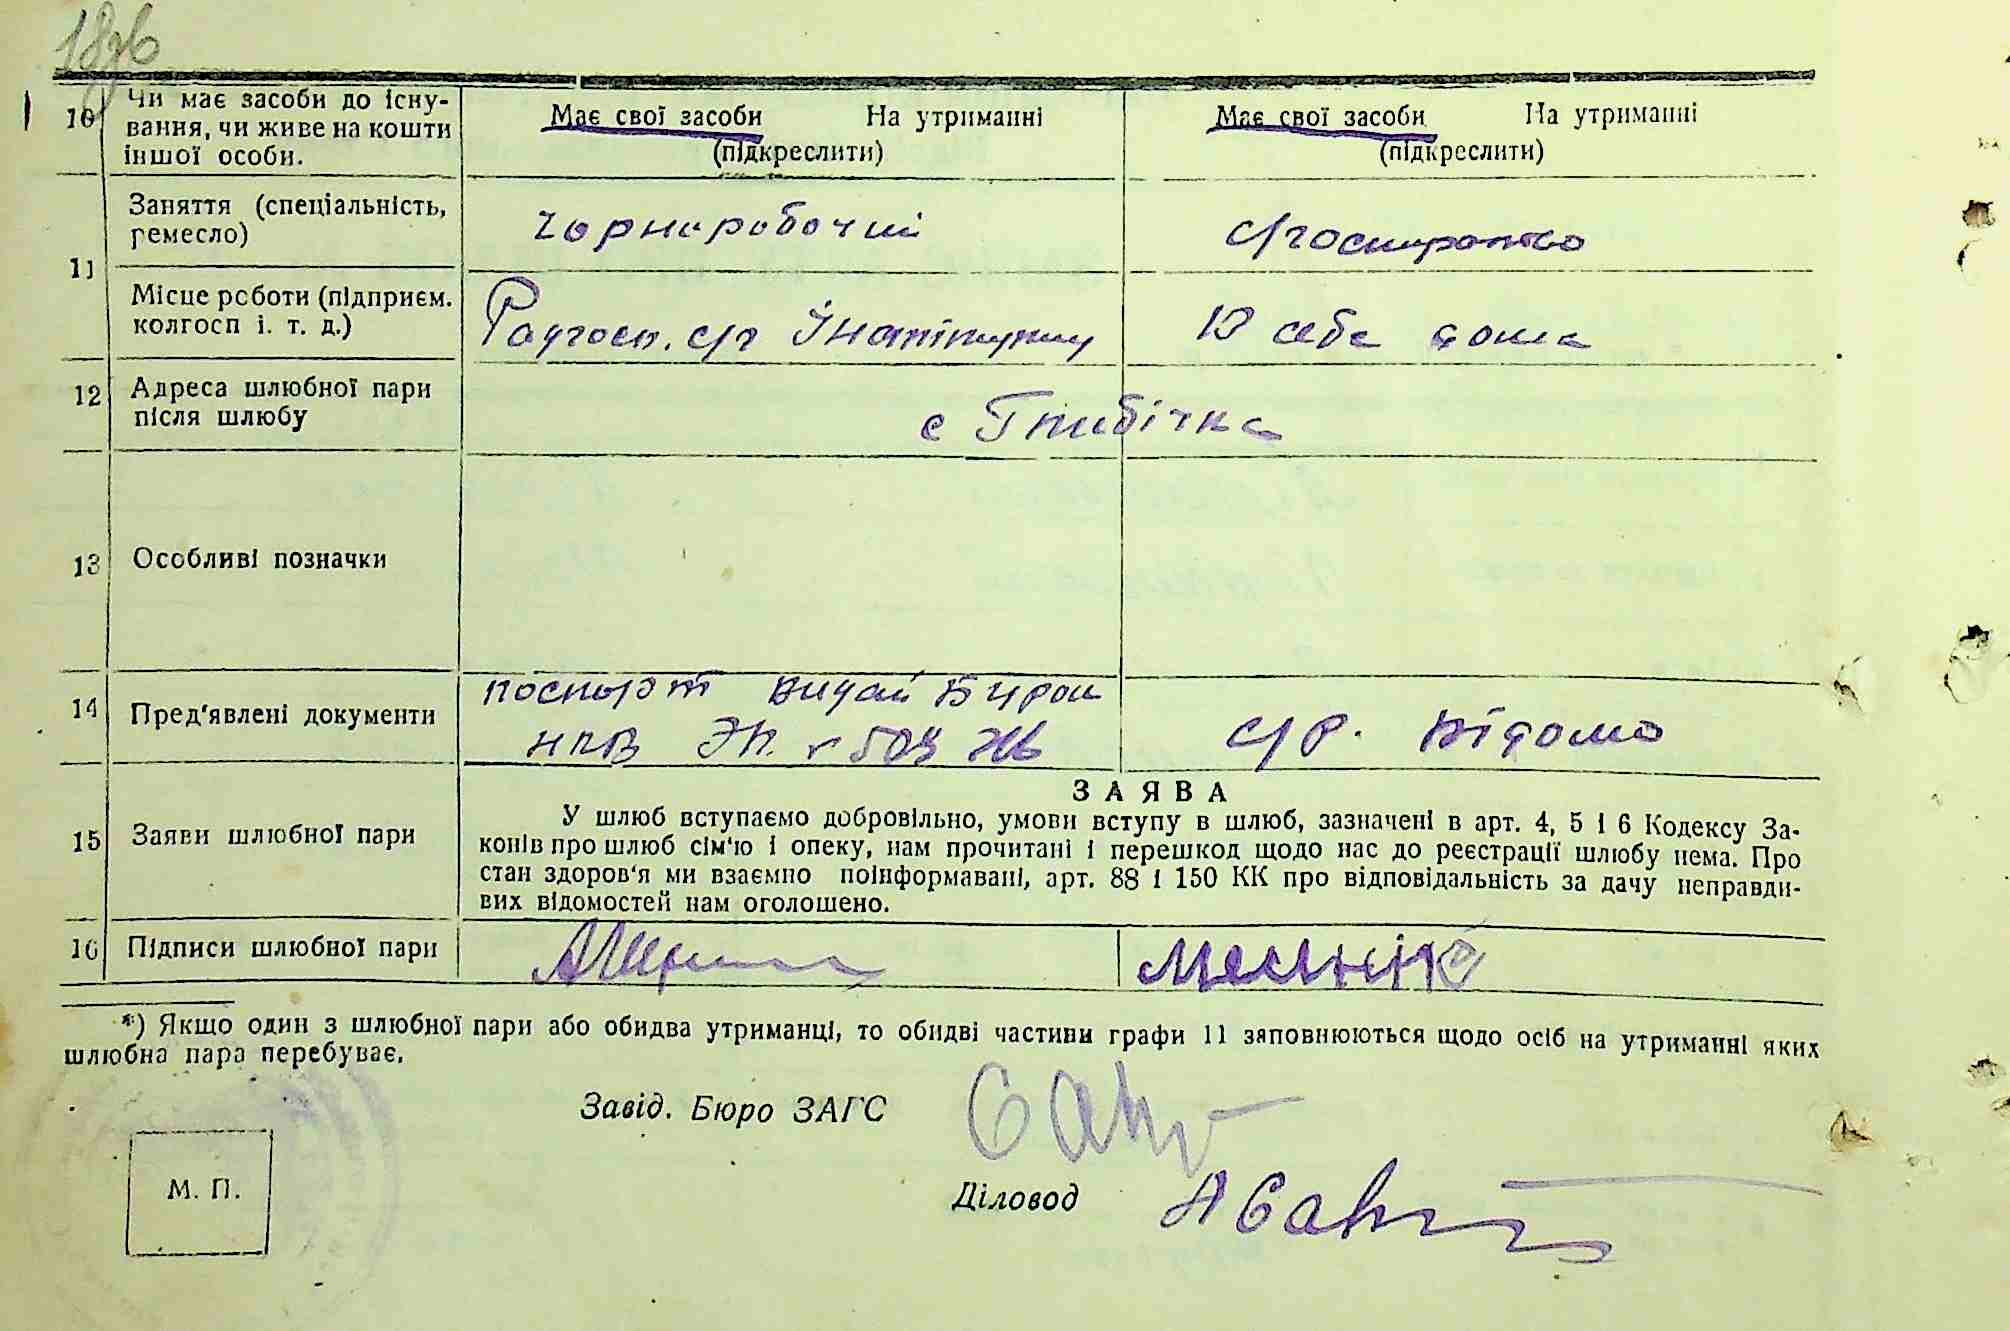 10 Чи має засоби до існу-
вання, чи живе на кошти
іншої особи.
Має свої засоби На утриманні
(підкреслити)
Має свої засоби На утриманні
(підкреслити)
11 Заняття (спеціальність,
ремесло)
Чорноробочий
с/господарство
Місце роботи (підприєм.
колгосп і. т. д.)
Радгосп. с/г Інституту
В себе дома
12 Адреса шлюбної пари
після шлюбу
с
13 Особливі позначки
14 Пред'явлені документи
паспорт видай Бюром
с/р. відомо
15 Заяви шлюбної пари
ЗАЯВА
У шлюб вступаємо добровільно, умови вступу в шлюб, зазначені в арт. 4, 5 і 6 Кодексу За-
конів про шлюб сім'ю і опеку, нам прочитані і перешкод щодо нас до реєстрації шлюбу нема. Про
стан здоров'я ми взаємно поінформавані, арт. 88 і 150 КК про відповідальність за дачу неправди-
вих відомостей нам оголошено.
16 Підписи шлюбної пари
*) Якщо один з шлюбної пари або обидва утриманці, то обидві частини графи 11 заповнюються щодо осіб на утриманні яких
шлюбна пара перебуває.
Завід. Бюро ЗАГС
Діловод
М. П.